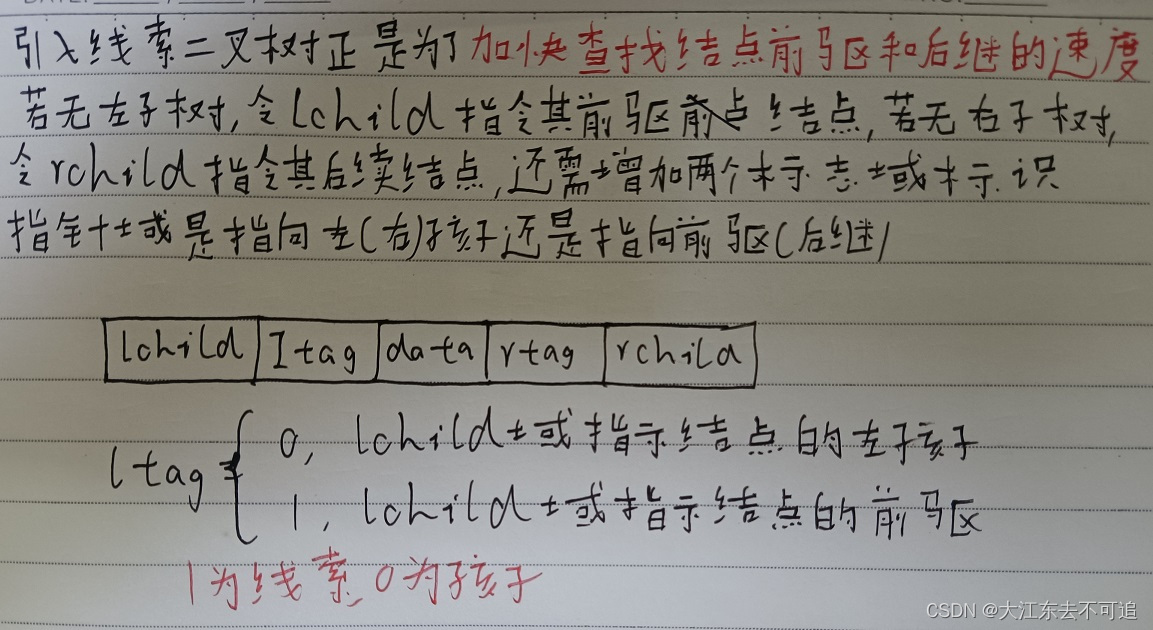 引入线索二叉树正是为了加快查找结点前驱和后继的速度
若无左子树,令lchild指令其前驱结点,若无右子树,
令rchild指令其后续结点,还需增加两个标志域标识
指针域是指向左(右)孩子还是指向前驱(后继)
lchild Itag data rtag rchild
ltag= { 0, lchild域指示结点的左孩子
1, lchild域指示结点的前驱
1为线索,0为孩子
CSDN @大江东去不可追